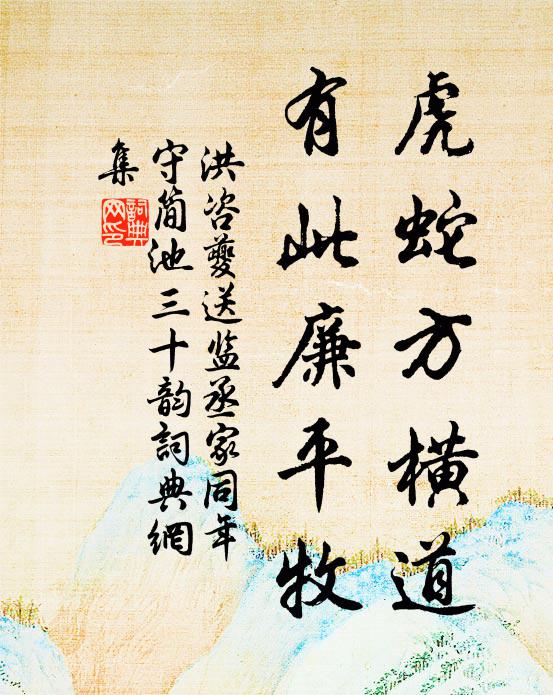 虎蛇方横道
有此廉平牧
洪咨夔送监丞家同年
守简池三十韵詞典網
集
詞典
网印